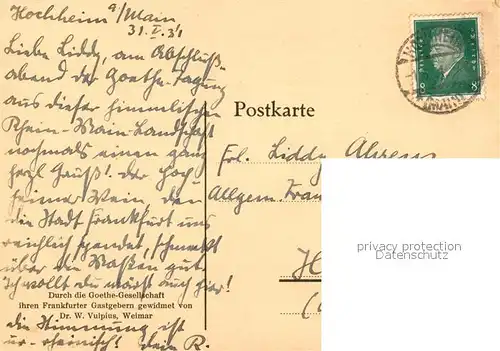 Hochheim a/Main
31. V. 31
Liebe Liddy, am Abschluß-
abend der Goethe-Tagung
aus dieser himmlischen
Rhein-Main-Landschaft
nochmals einen ganz
herzl Gruß! Der Hoch-
heimer Wein, den
die Stadt Frankfurt uns
reichlich spendet, schmeckt
über die Maßen gut.
Ich wollt du wärst auch hier!
Durch die Goethe-Gesellschaft
ihren Frankfurter Gastgebern gewidmet von
Dr. W. Vulpius, Weimar
die Stimmung ist
ur-rheinisch! Dein R.
Postkarte
Frl. Liddy Ahrens
Allgem. Fran
H
privacy protection
Datenschutz